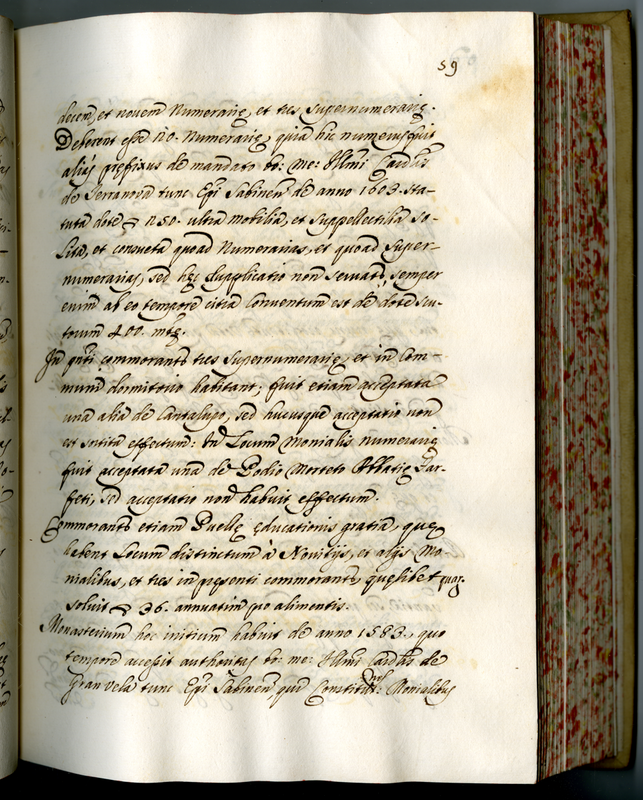 59
decem, et novem Numerarię, et tres supernumerarię.
Deberent esse no. Numerarię, quia hic numerus fuit
aliàs pręfixus de mandato bo: me: Illmi Cardlis
de Terranova tunc Epi Sabinen de anno 1603. Sta-
tuta dote ▽ 150. ultra mobilia, et suppellectilia so-
lita, et consueta quoad Numerarias, et quoad super-
numerarias, sed hęc duplicatio non servatr, semper
enim ab eo tempore citra Conventum est de dote scu-
torum 400. mtę.
In pnti commorantr tres supernumerarię, et in com-
muni dormitorio habitant; fuit etiam acceptata
una alia de Cantalupo, sed hucusque acceptatio non
est sortita effectum: In Locum Monialis numerarię
fuit acceptata una de Podio Morteto Abbatię Far-
feti, sed acceptatio non habuit effectum.
Commorantr etiam Puellę educationis gratia, quę
habent Locum distinctum à Novitijs, et alijs Mo-
nialibus, et tres in pręsenti commorantr, quęlibet quar.
soluit ▽ 36. annuatim pro alimentis.
Monasterium hoc initium habuit de anno 1583. quo
tempore accessit authoritas bo: me: Illmi Cardlis de
Granvela tunc Epi Sabinen qui Constitutnes Monialibus